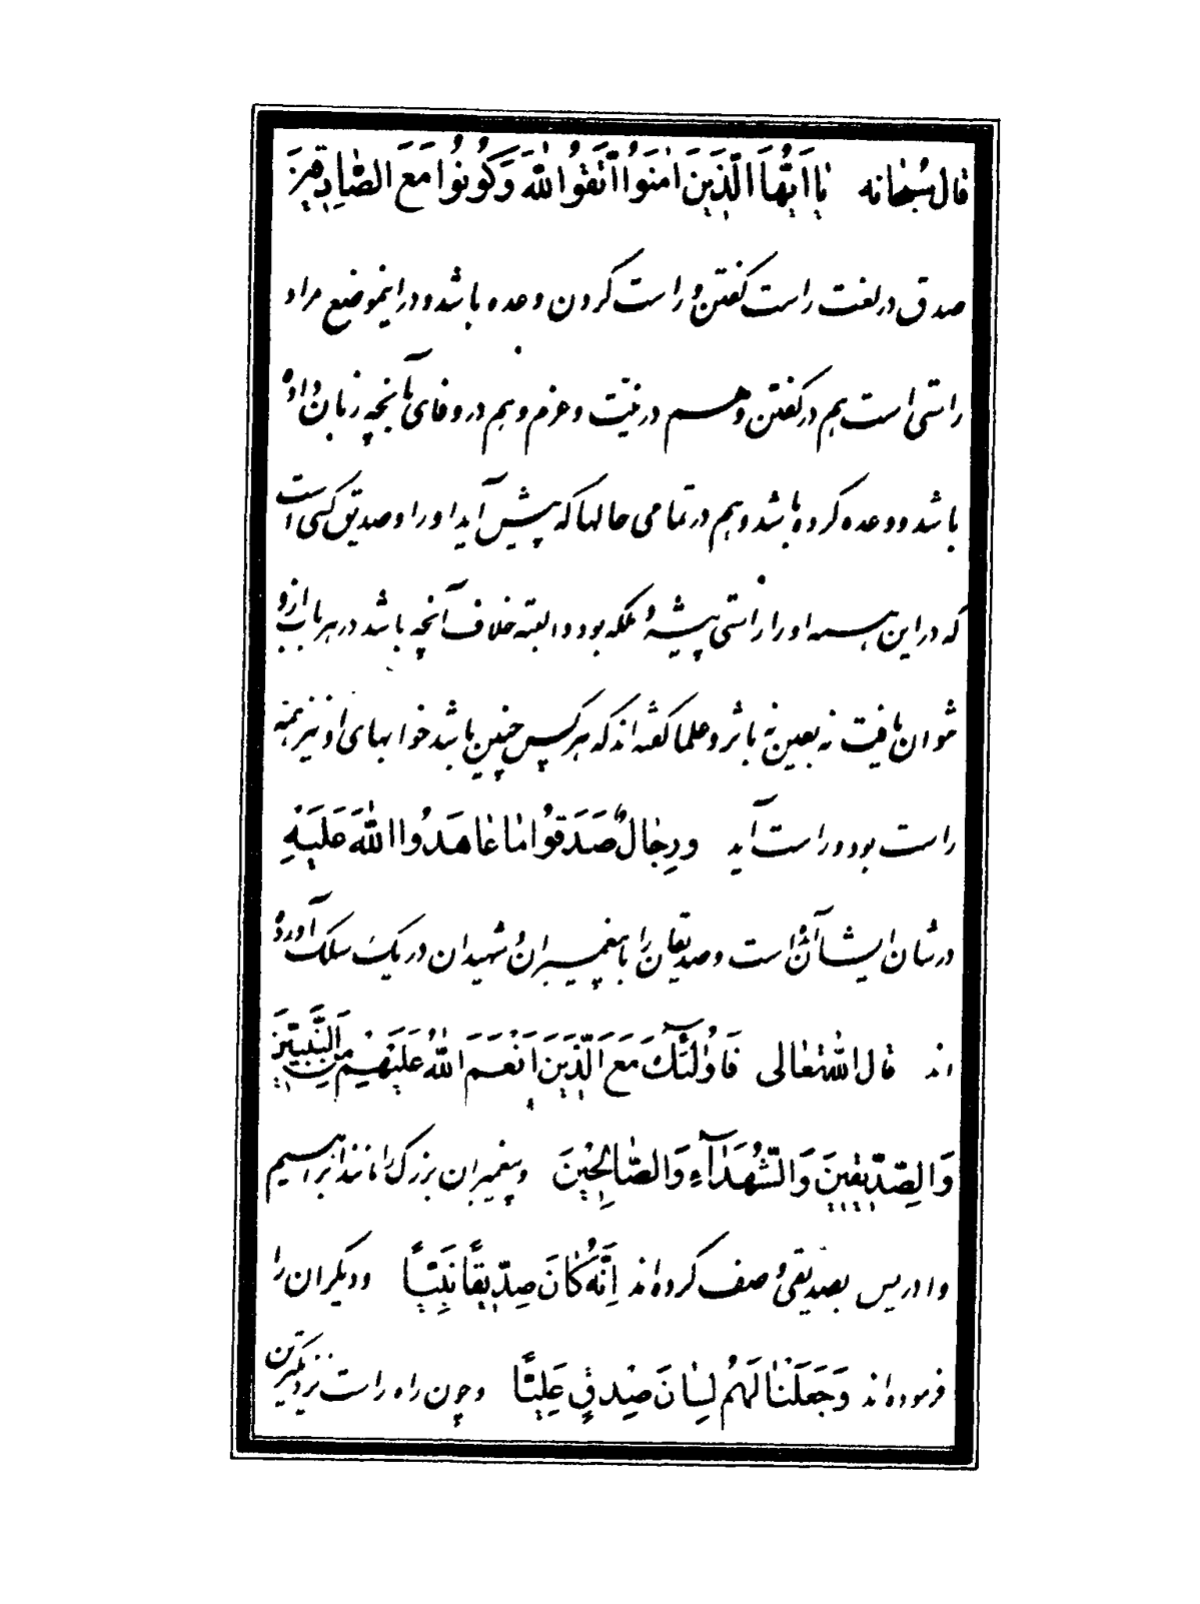 قال سبحانه یا اَیُّهَا الَّذینَ اٰمَنُوا اتَّقُوا اللّٰهَ وَکُونُوا مَعَ الصّٰادِقینَ
صدق در لغت راست گفتن و راست کردن وعده باشد و در اینموضع مراد
راستی است هم در گفتن و هم در نیّت و عزم و هم در وفای بآنچه زبان داده
باشد و وعده کرده باشد و هم در تمامی حالها که پیش آید او را و صدیق کسی است
که در این همه او را راستی پیشه و ملکه بود و البته خلاف آنچه باشد در هر باب ازو
نتوان یافت نه بعین نه باثر و علما گفته‌اند که هر کس چنین باشد خوابهای او نیز همه
راست بود و راست آید و رِجٰالٌ صَدَقُوا مٰا عٰاهَدُوا اللّٰهَ عَلَیْهِ
در شان ایشان است و صدیقان را با پیغمبران و شهیدان در یک سلک آورده
اند قال اللّٰه تعالی فَاُولٰئِکَ مَعَ الَّذینَ اَنْعَمَ اللّٰهُ عَلَیْهِمْ مِنَ النَّبِیّینَ
وَالصِّدّیقینَ وَالشُّهَدٰآءِ وَالصّٰالِحینَ و پیغمبران بزرگ را مانند ابراهیم
و ادریس بصدیقی وصف کرده‌اند اِنَّهُ کٰانَ صِدّیقًا نَبِیًّا و دیگران را
فرموده‌اند وَجَعَلْنٰا لَهُمْ لِسٰانَ صِدْقٍ عَلِیًّا و چون راه راست نزدیکترین